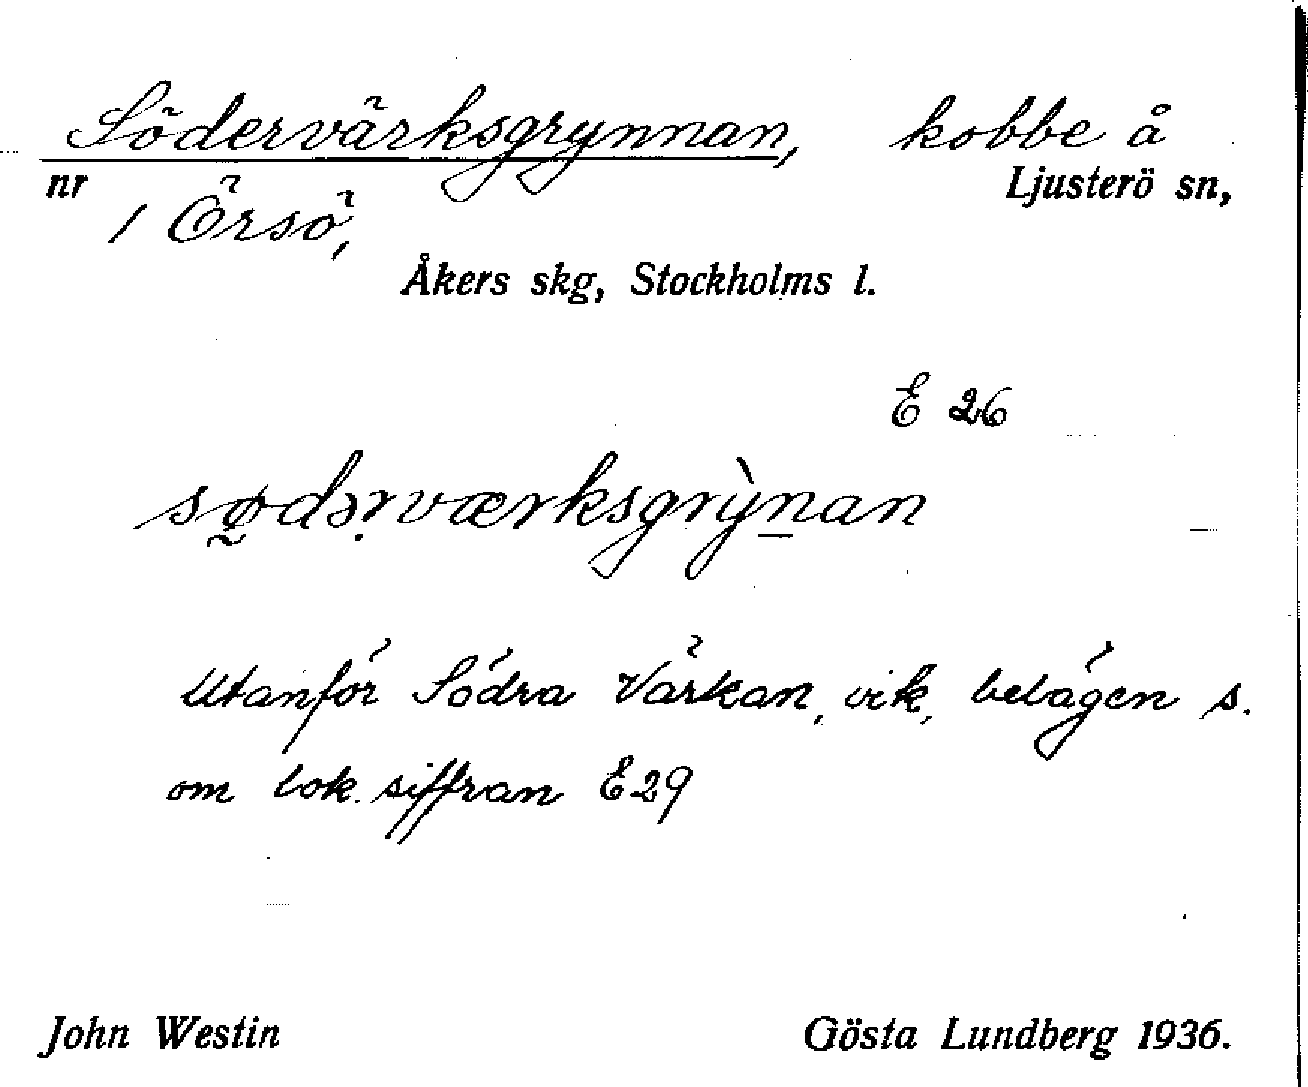 Södervärksgrynnan, kobbe å
nr Ljusterö sn,
1 Örsö,
Åkers skg, Stockholms l.
E 26
sø̰də̣rværksgrỳn̲an
Utanför Södra Värkan, vik, belägen s.
om lok. siffran E29
John Westin Gösta Lundberg 1936.